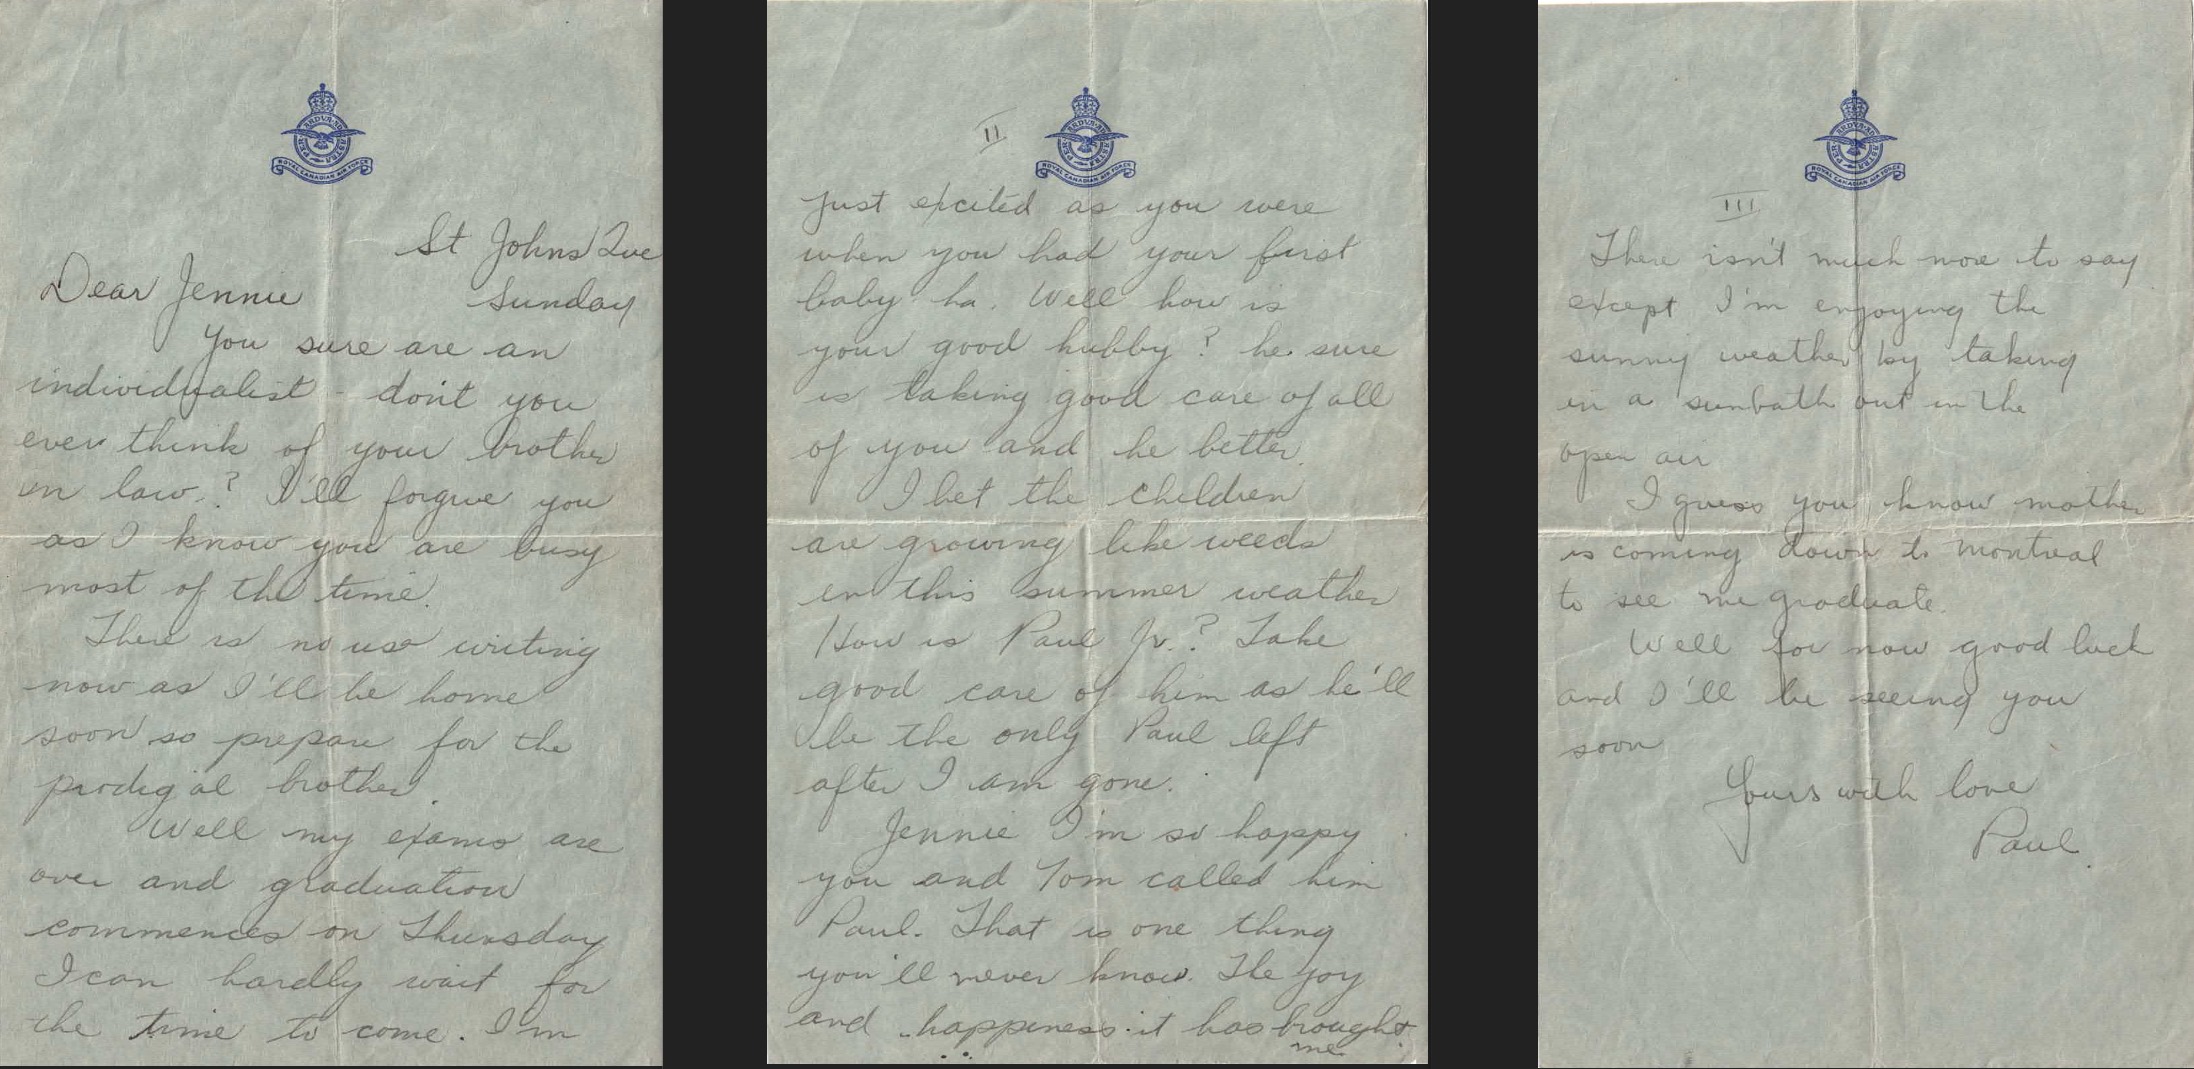 PER ARDVA AD ASTRA
ROYAL CANADIAN AIR FORCE
St Johns Que
Dear Jennie Sunday
You sure are an
individualist - don't you
ever think of your brother
in law? I'll forgive you
as I know you are busy
most of the time.
There is no use writing
now as I'll be home
soon so prepare for the
prodigal brother.
Well my exams are
over and graduation
commences on Thursday
I can hardly wait for
the time to come. I'm
II
PER ARDVA AD ASTRA
ROYAL CANADIAN AIR FORCE
just excited as you were
when you had your first
baby ha. Well how is
your good hubby? he sure
is taking good care of all
of you and he better.
I bet the children
are growing like weeds
in this summer weather
How is Paul Jr.? Take
good care of him as he'll
be the only Paul left
after I am gone.
Jennie I'm so happy
you and Tom called him
Paul. That is one thing
you'll never know. The joy
and happiness it has brought
me
PER ARDVA AD ASTRA
ROYAL CANADIAN AIR FORCE
III
There isn't much more to say
except I'm enjoying the
sunny weather by taking
in a sunbath out in the
open air
I guess you know mother
is coming down to Montreal
to see me graduate.
Well for now good luck
and I'll be seeing you
soon
Yours with love
Paul.